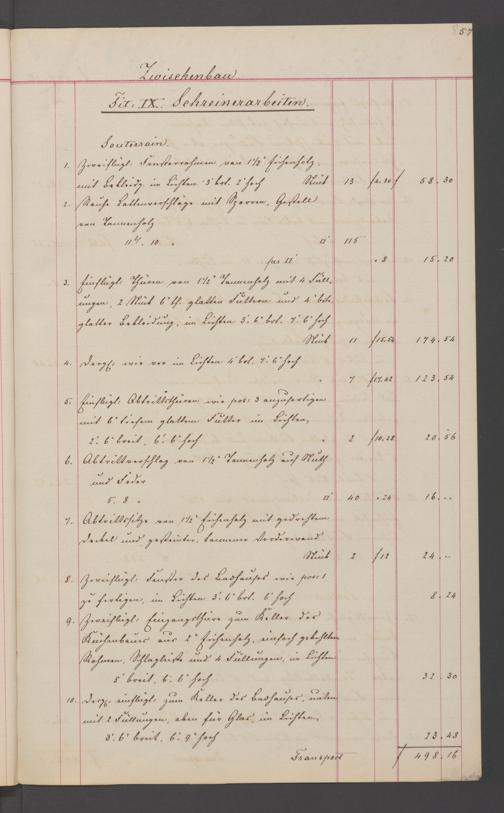 57
Zwischenbau.
Tit: IX. Schreinerarbeiten.
Souterrain.
1. Zweiflügl: Fensterrahmen von 1½" Eichenholz,
mit Bekleidg im Lichten 3' brt. 2' hoch Stück 13 f 4. 30 f 58. 30
2. Rauhe Lattenverschläge mit Sperren, Gestell
von Tannenholz
11,5. 10. □' 115
per □' " 8 15. 20
3. Einflügl: Thüren von 1½" Tannenholz mit 4 Füll-
ungen, 2 Stück 6" tf. glatten Futtern und 4" brt.
glatter Bekleidung, im Lichten 3'. 6" brt. 7'. 6" hoch
Stück 11 f 15.54 174. 54
4. Dergl: wie vor im Lichten 4' brt. 7'. 6" hoch
" 7 f 17.42 123. 54
5. Einflügl: Abtrittthüren wie pos: 3 anzufertigen
mit 6" tiefem glattem Futter im Lichten,
2'. 6" breit, 6'. 6" hoch " 2 f 10. 28 20. 56
6. Abtrittverschlag von 1½" Tannenholz auf Nuth
und Feder
5. 8 " □' 40 " 24 16. --
7. Abtrittsitze von 1½" Eichenholz mit gedrehtem
Deckel und tannener Vorderwand
Stück 2 f 12 24. --
8. Zweiflügl: Fenster des Badhauses wie pos: 1
zu fertigen, im Lichten 3'. 6" brt. 6' hoch 8. 24
9. Zweiflügl: Eingangsthüre zum Keller des
Küchenbaues aus 2" Eichenholz, einfach
Rahmen, Schlagleiste und 4 Füllungen, im Lichten
5' breit, 6'. 6" hoch 32. 30
10. Dergl: einflügl: zum Keller des Badhauses, unten
mit 2 Füllungen, oben für Glas, im Lichten,
3'. 6" breit, 6'. 9" hoch 23. 48
Transport f 498. 16